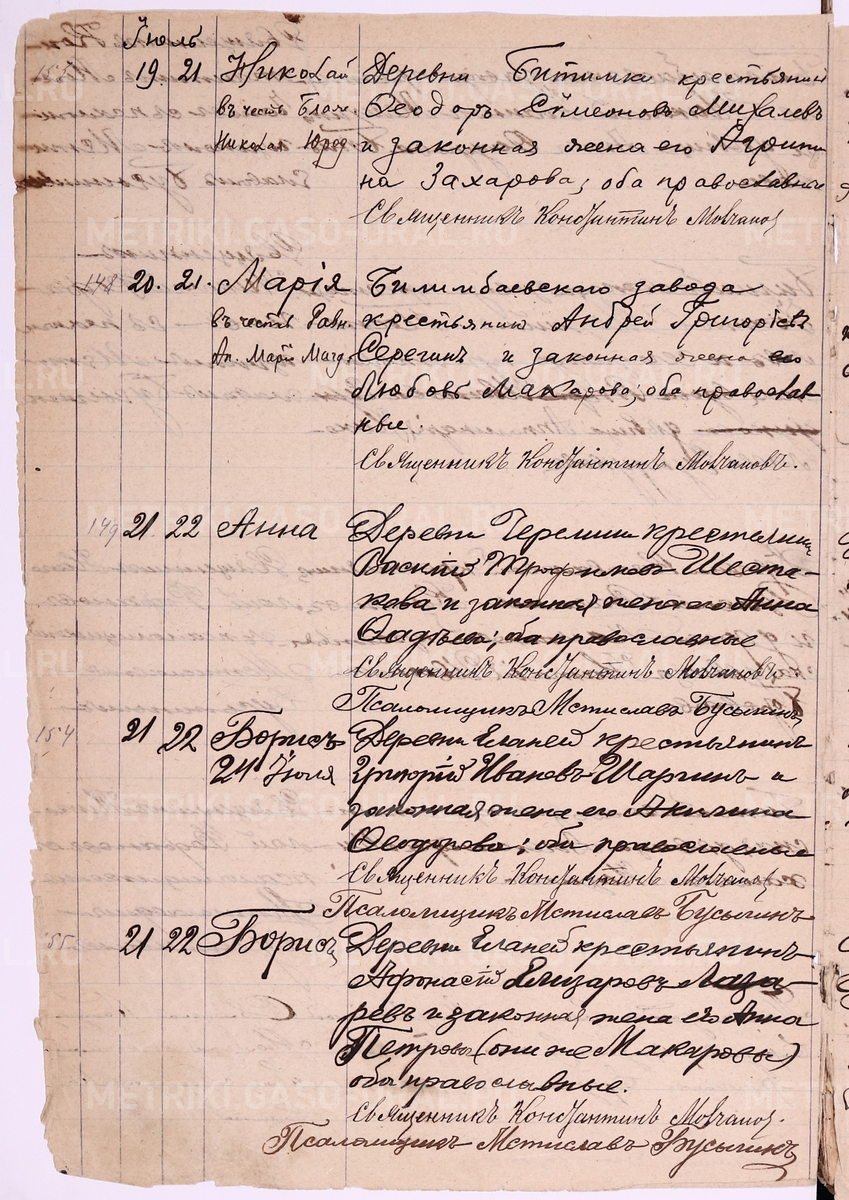 Іюль
19 21 Николай Деревни Битимки крестьянинъ
въ честь Блаж. Ѳеодоръ Сѵмеоновъ Михалевъ
Николая Юрод. и законная жена его Агрипи
на Захарова; оба православные
Священникъ Константинъ Молчанов
148 20. 21. Марія Билимбаевскаго завода
въ честь Равн. крестьянин Андрей Григорьевъ
Ап. Маріи Магд. Серегинъ и законная жена его
Любовь Макарова; оба православ
ные.
Священникъ Константинъ Молчановъ.
149 21 22 Анна Деревни крестьянин
Василій Трофимовъ Шеста-
кова и законная жена его Анна
Ѳадѣева; оба православные
Священникъ Константинъ Молчановъ
Псаломщикъ Мстиславъ Бусыгинъ
154 21 22 Борисъ Деревни Еланей крестьянинъ
24 Іюля Григорій Ивановъ Шаргинъ и
законная жена его Акилина
Ѳеодорова; оба православные
Священникъ Константинъ Молчанов
Псаломщикъ Мстиславъ Бусыгинъ
55 21 22 Борисъ Деревни Еланей крестьянинъ
Афонасій Елизаровъ Лаза-
ревъ и законная жена его Анна
Петрова (они же Макаровы)
оба православные.
Священникъ Константинъ Молчанов.
Псаломщикъ Мстиславъ Бусыгинъ